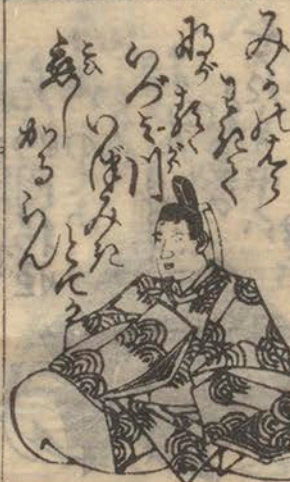 みかのはら
わきて
ながるゝ
いづみ川
いつみき
とてか
恋し
かるらん